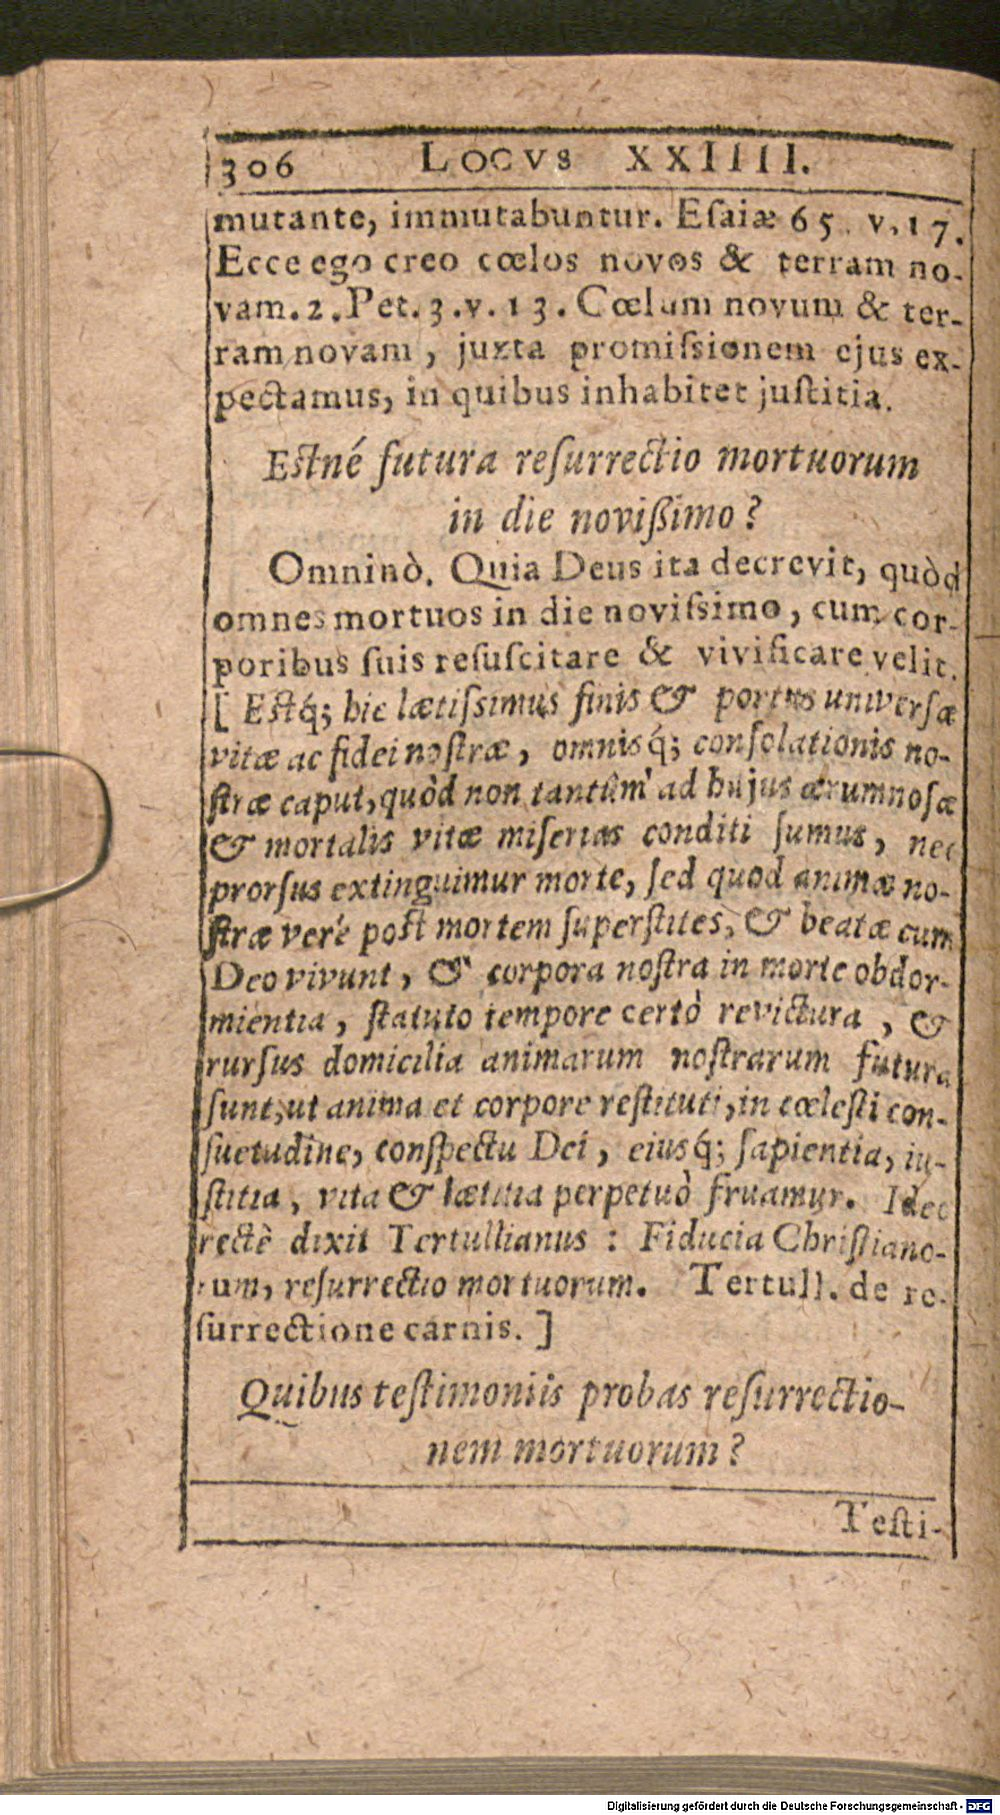 306 LOCVS XXIIII.
mutante, immutabuntur. Eſaiæ 65. v. 17.
Ecce ego creo cœlos novos & terram no-
vam. 2. Pet. 3. v. 13. Cœlum novum & ter-
ram novam, juxta promiſsionem ejus ex-
pectamus, in quibus inhabitet juſtitia.
Eſtné futura reſurrectio mortuorum
in die novißimo?
Omninò. Quia Deus ita decrevit, quòd
omnes mortuos in die noviſsimo, cum cor-
poribus ſuis reſuſcitare & vivificare velit.
[ Eſtq́; hic lætiſsimus finis & portus univerſæ
vitæ ac fidei noſtræ, omnisq́; conſolationis no-
ſtræ caput, quòd non tantùm ad hujus ærumnoſæ
& mortalis vitæ miſerias conditi ſumus, nec
prorſus extinguimur morte, ſed quod animæ no-
ſtræ verè poſt mortem ſuperſtites, & beatæ cum
Deo vivunt, & corpora noſtra in morte obdor-
mientia, ſtatuto tempore certò revictura, &
rurſus domicilia animarum noſtrarum futura
ſunt, ut anima et corpore reſtituti, in cœleſti con-
ſuetudine, conſpectu Dei, eiusq́; ſapientia, iu-
ſtitia, vita & lætitia perpetuò fruamur. Ideo
rectè dixit Tertullianus: Fiducia Chriſtiano-
rum, reſurrectio mortuorum. Tertull. de re-
ſurrectione carnis. ]
Quibus teſtimoniis probas reſurrectio-
nem mortuorum?
Teſti-
Digitalisierung gefördert durch die Deutsche Forschungsgemeinschaft - DFG